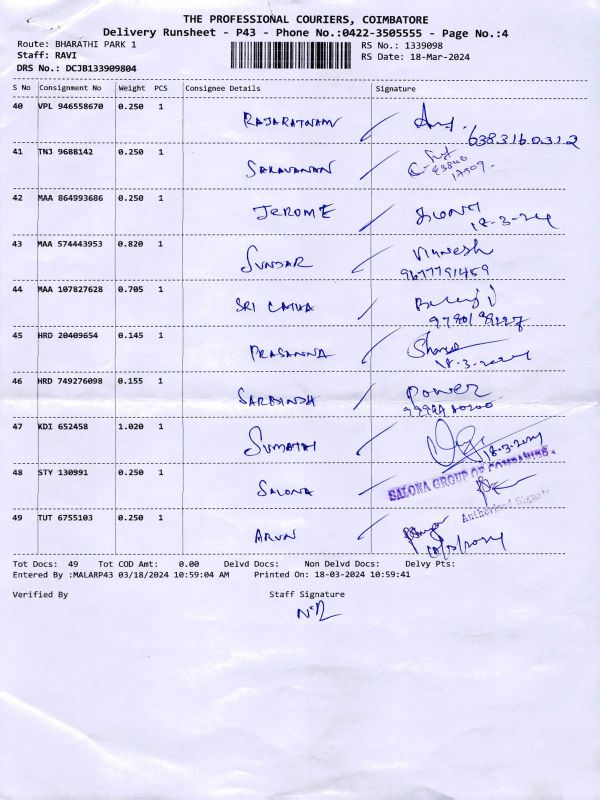 THE PROFESSIONAL COURIERS, COIMBATORE
Delivery Runsheet - P43 - Phone No.:0422-3505555 - Page No.:4
Route: BHARATHI PARK 1 RS No.: 1339098
Staff: RAVI RS Date: 18-Mar-2024
DRS No.: DCJB133909804
S No Consignment No Weight PCS Consignee Details Signature
40 VPL 946558670 0.250 1
RAJARATNAM
6383160312
41 TNJ 9688142 0.250 1
SARAVANAN
42 MAA 864993686 0.250 1
JEROME
18-3-24
43 MAA 574443953 0.820 1
SUNDAR Vignesh
9677791459
44 MAA 107827628 0.705 1
SRI
45 HRD 20409654 0.145 1
PRASANNA
18-3-2024
46 HRD 749276098 0.155 1
Power
47 KDI 652458 1.020 1
SUMATHI 18-3-2024
48 STY 130991 0.250 1
SALONA GROUP OF COMPANIES.
SALONA
Authorised Signatory
49 TUT 6755103 0.250 1
ARUN
Tot Docs: 49 Tot COD Amt: 0.00 Delvd Docs: Non Delvd Docs: Delvy Pts:
Entered By :MALARP43 03/18/2024 10:59:04 AM Printed On: 18-03-2024 10:59:41
Verified By Staff Signature